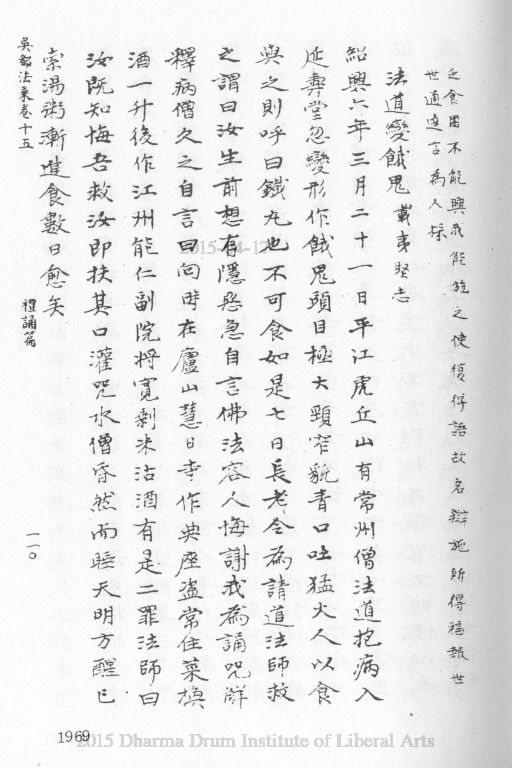 之食由不能與我能施之使復得語故名辯施所得福報世
世通達言為人採
法道變餓鬼 載夷堅志
紹興六年三月二十一日平江虎丘山有常州僧法道抱病入
延壽堂忽變形作餓鬼頭目極大頸窄貌青口吐猛火人以食
與之則呼曰鐵丸也不可食如是七日長老令為請道法師救
之謂曰汝生前想有隱惡急自言佛法容人悔謝我為誦咒解
釋病僧久之自言曰向時在廬山慧日寺作典座盜常住菜換
酒一升後作江州能仁副院將寬剩米沽酒有是二罪法師曰
汝既知悔吾救汝即扶其口灌咒水僧昏然而睡天明方醒已
索湯粥漸進食數日愈矣
吳郡法乘卷十五
禮誦篇
一一〇
2015-04-17
1969
2015 Dharma Drum Institute of Liberal Arts